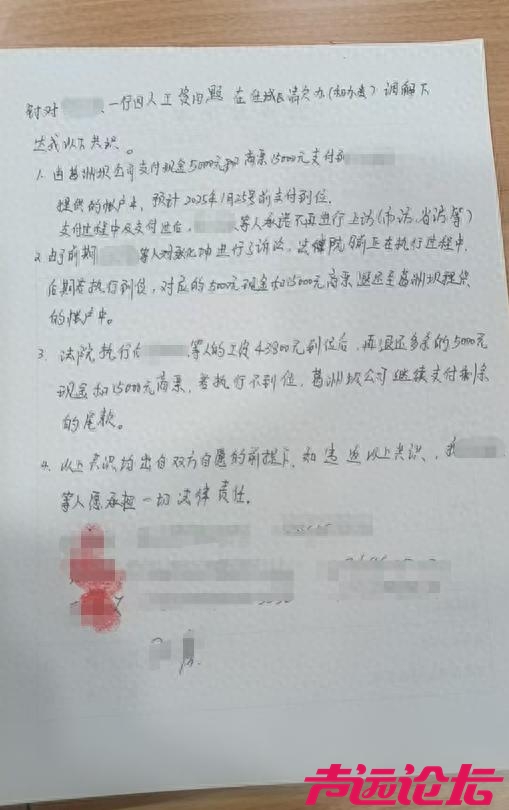 针对 一行四人工资问题 在任城区清欠办(劳动局)调解下
达成以下共识。
1. 由葛洲坝公司支付现金5000元和商票15000元支付到
提供的帐户中, 预计2025年1月25号前支付到位.
支付过程中及支付过后, 等人承诺不再进行上访(市访、省访等)
2. 由于前期 等人对 进行了诉讼, 法律院目前正在执行过程中,
后期若执行到位, 对应的5000元现金和15000元商票退还至葛洲坝提供
的帐户中。
3. 法院执行 等人的工资43800元到位后, 再退还多余的5000元
现金和15000元商票, 若执行不到位, 葛洲坝公司继续支付剩余
的尾款。
4. 以上共识均出自双方自愿的前提下, 如违返以上共识、我
等人愿承担一切法律责任.
声远论坛